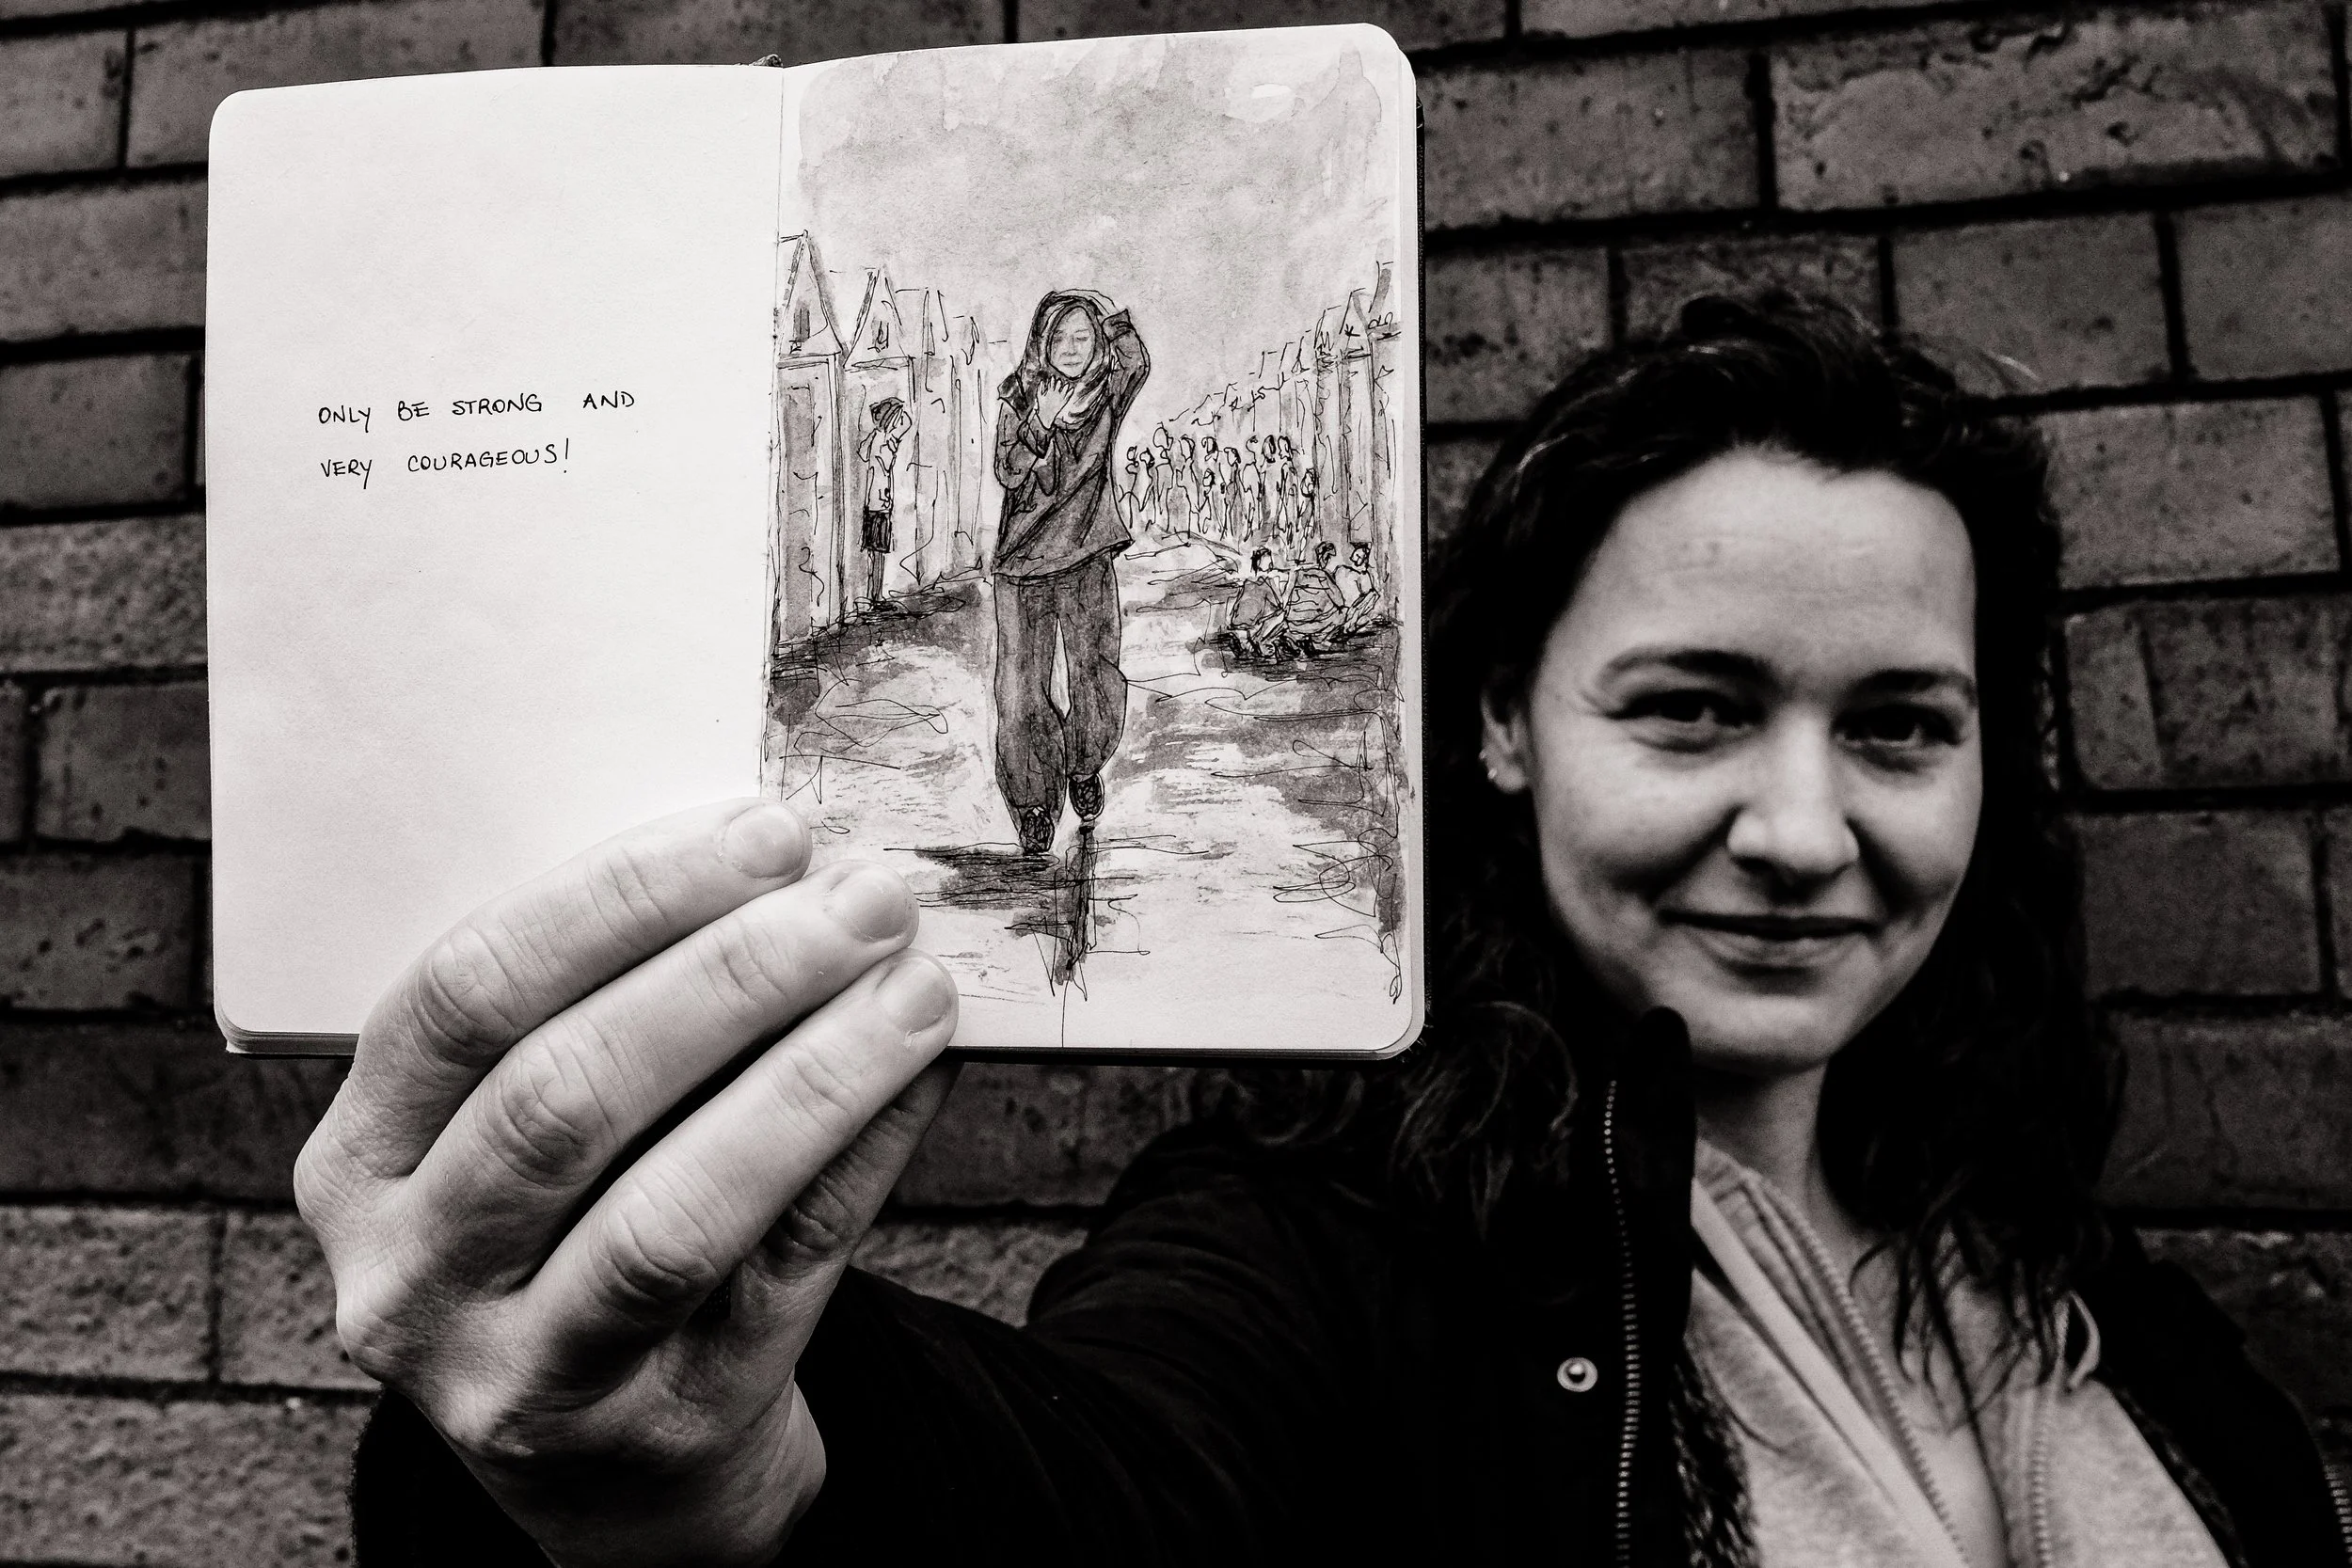 ONLY BE STRONG AND
VERY COURAGEOUS!